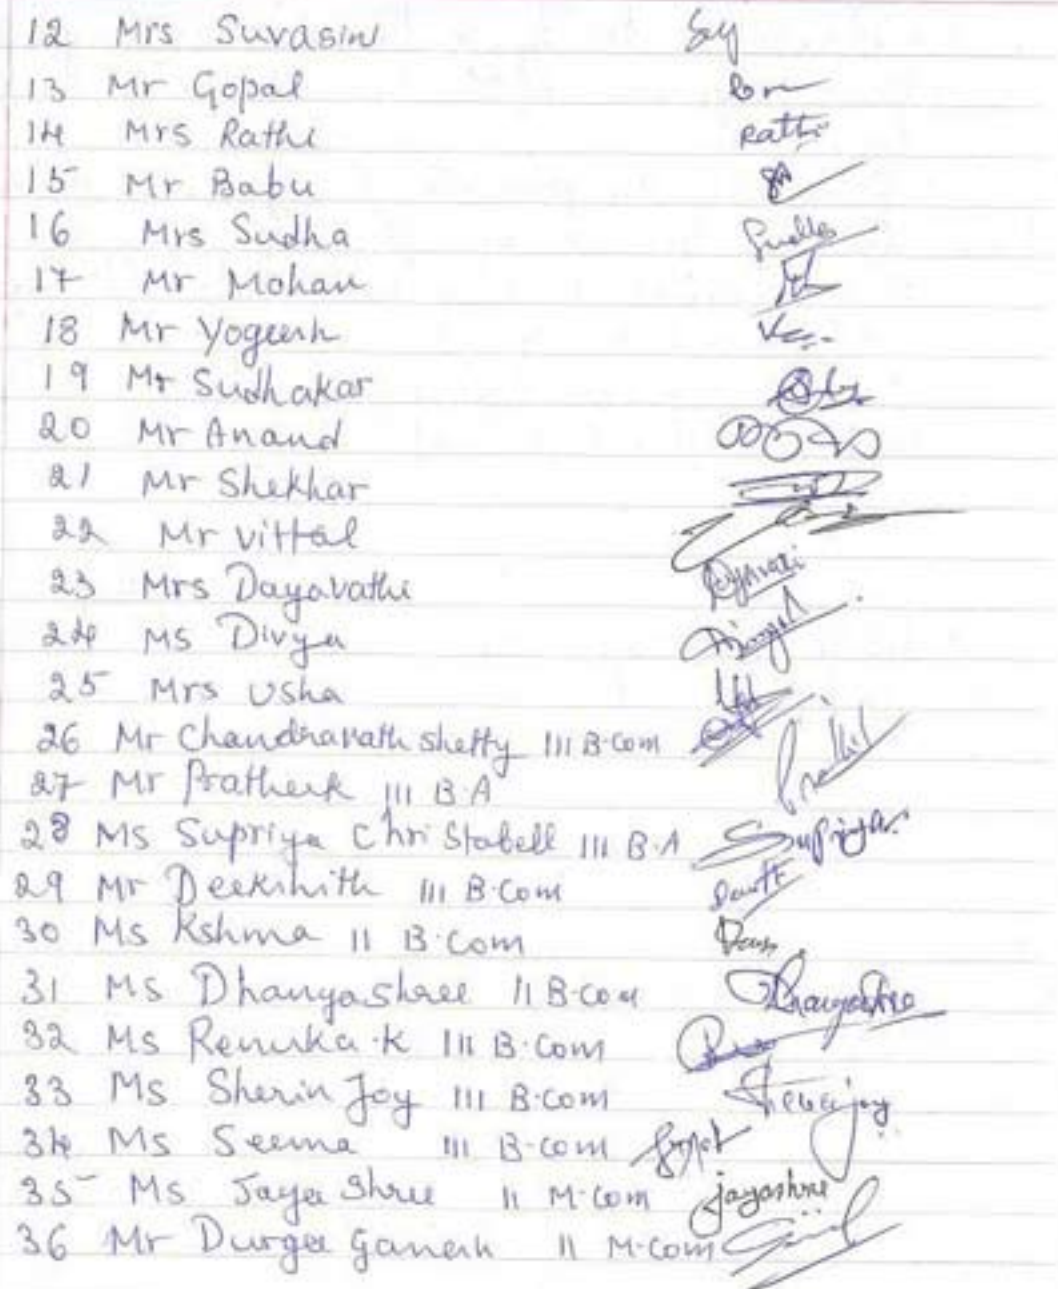 12 Mrs Suvasini
13 Mr Gopal
14 Mrs Rathi Rathi
15 Mr Babu
16 Mrs Sudha
17 Mr Mohan
18 Mr Yogeesh
19 Mr Sudhakar
20 Mr Anand
21 Mr Shekhar
22 Mr Vittal
23 Mrs Dayavathi
24 Ms Divya
25 Mrs Usha
26 Mr Chandranath Shetty III B.Com
27 Mr Pratheek III B.A
28 Ms Supriya Christabell III B.A Supriya
29 Mr Deekshith III B.Com
30 Ms Kshma II B.Com
31 Ms Dhanyashree II B.Com Dhanyashree
32 Ms Renuka.K III B.Com
33 Ms Sherin Joy III B.Com
34 Ms Seema III B.Com
35 Ms Jayashree II M.Com jayashree
36 Mr Durga Ganesh II M.Com